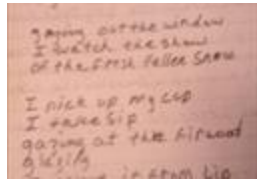 gazing out the window
I watch the snow
of the fresh fallen snow
I pick up my cup
I take sip
gazing at the firewood
it from lip